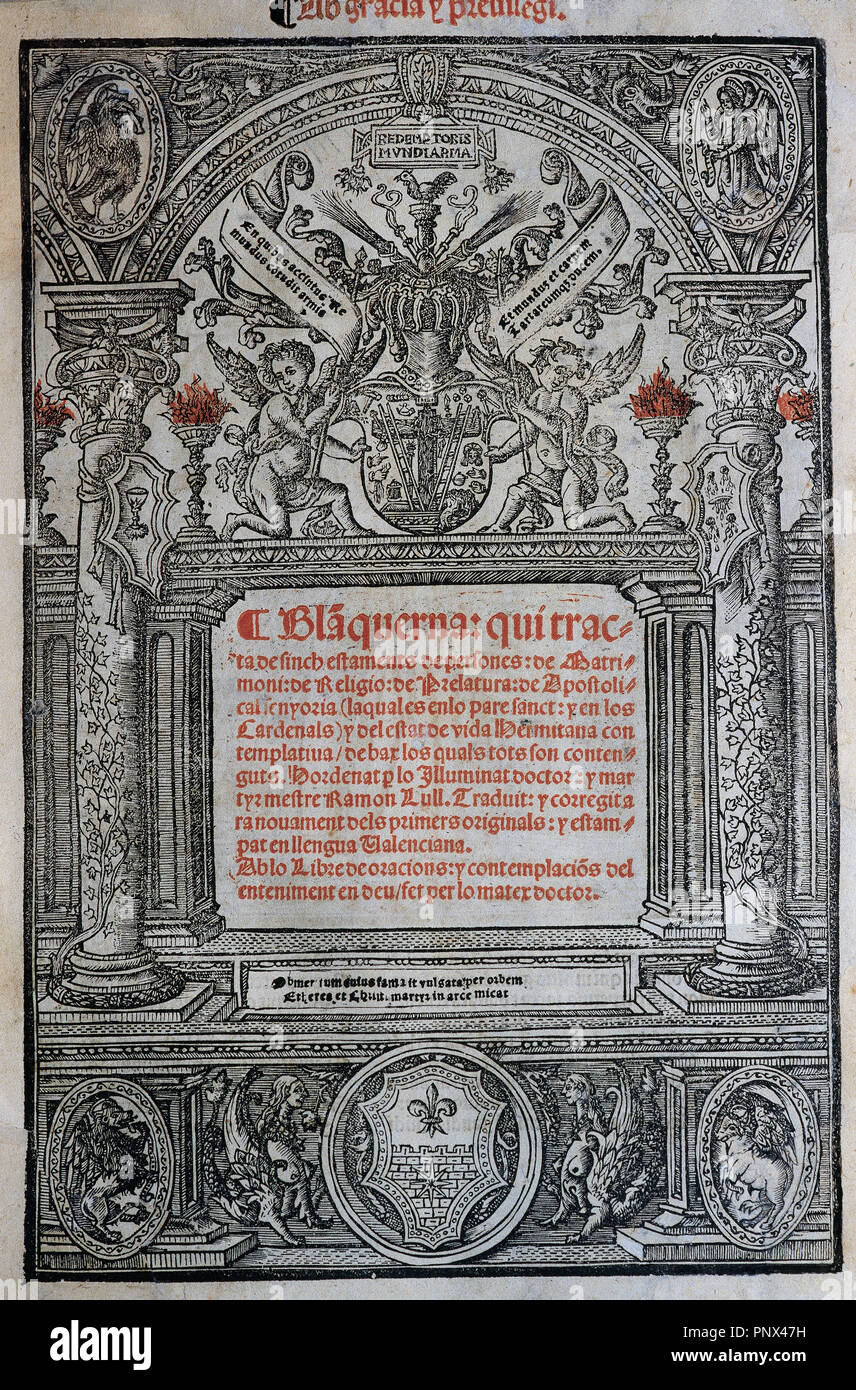 ¶ Ab gracia y preuilegi.
REDEMPTORIS
MVNDI ARMA
mundus
Et mundus et
¶ Blāquerna: qui trac-
ta de sinch estaments de persones: de Matri-
moni: de Religio: de Prelatura: de Apostoli-
cal senyoria (laqual es enlo pare sanct: y en los
Cardenals) y del estat de vida Hermitana con
templatiua / debax los quals tots son conten-
guts. Hordenat ꝑ lo Illuminat doctor: y mar
tyr mestre Ramon Lull. Traduit: y corregit a
ra nouament dels primers originals: y estam-
pat en llengua Ualenciana.
Ab lo Libre de oracions: y contemplaciōs del
enteniment en deu / fet per lo matex doctor.
fama it vulgata per orbem
et martyr in arce micat
alamy
Image ID: PNX47H
www.alamy.com